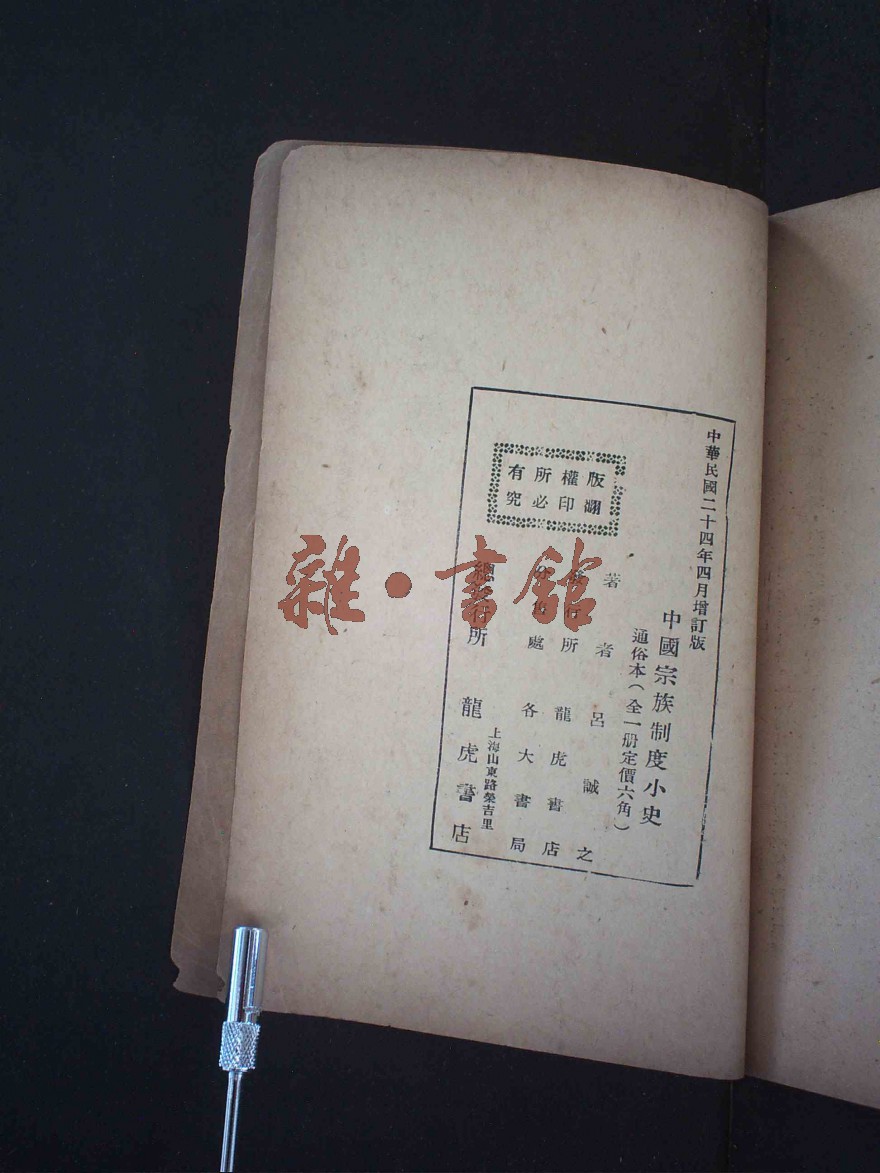 中華民國二十四年四月增訂版
中國宗族制度小史
通俗本（全一册定價六角）
版權所有
翻印必究
著者 呂誠之
發行所 龍虎書店
分售處 各大書局
上海山東路榮吉里
總發行所 龍虎書店
雜·書館